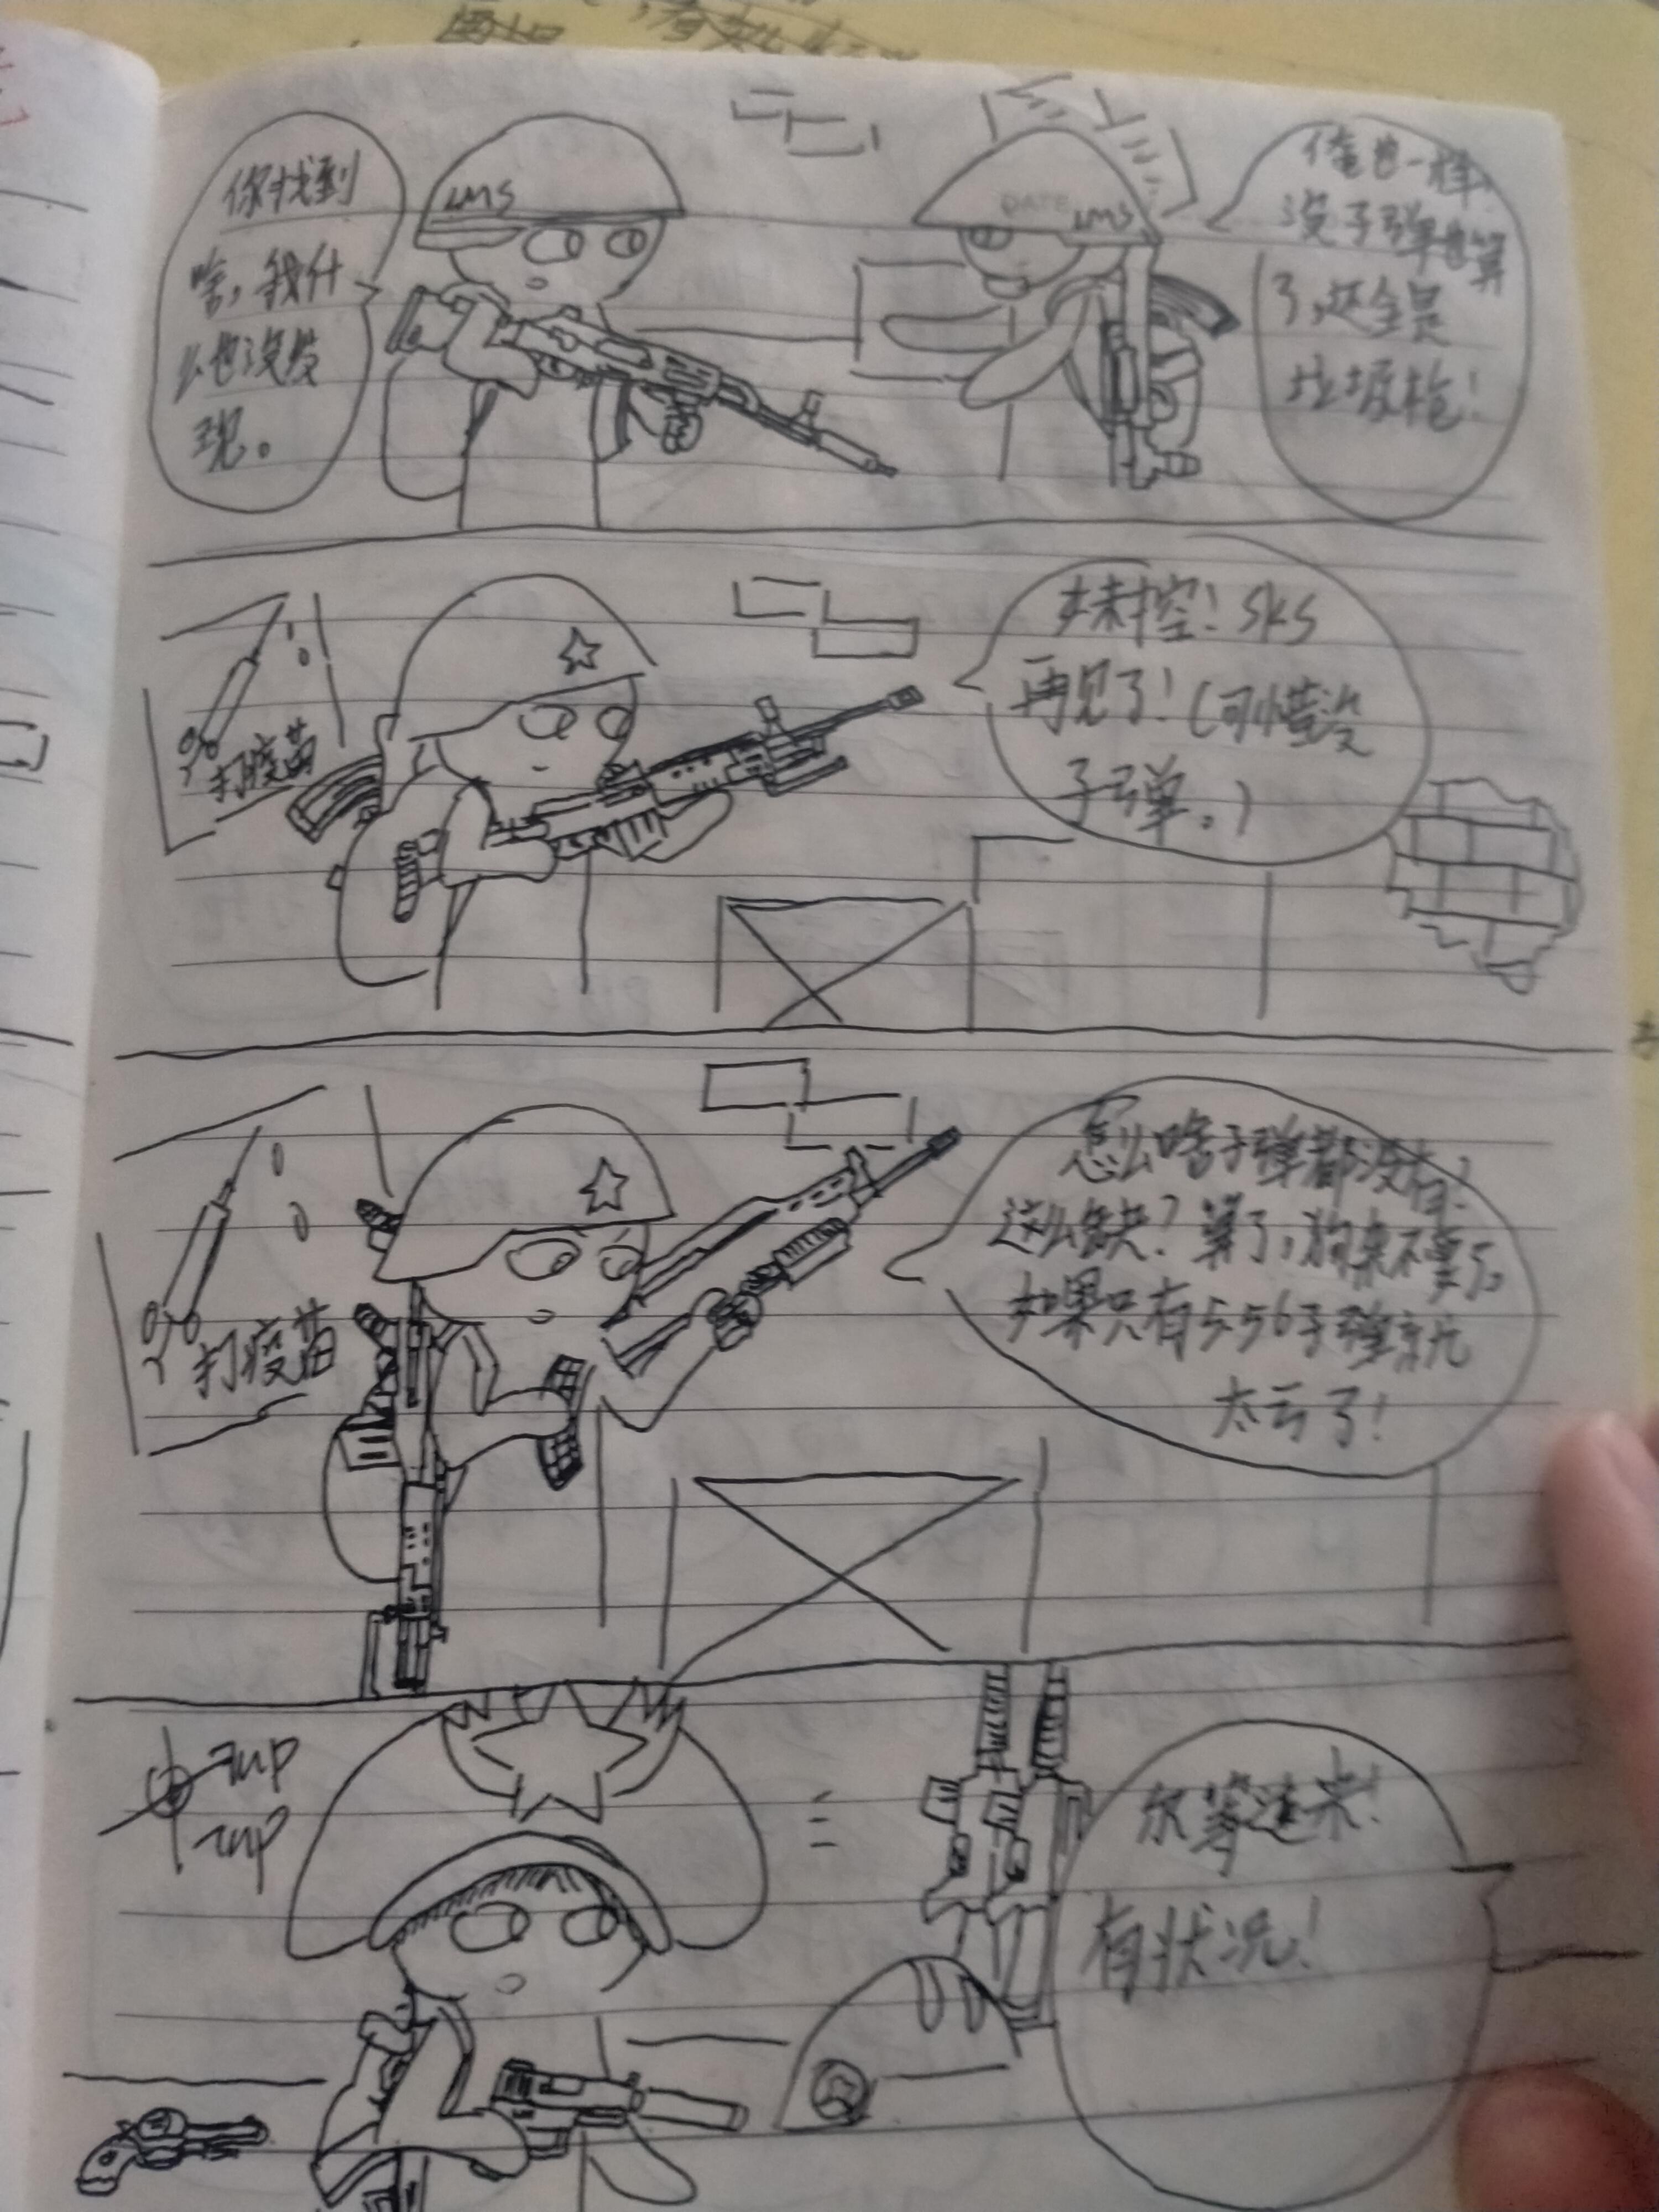 你找到
啥,我什
么也没发
现。
LMS
DATE
LMS
俺也一样,
没子弹也算
了,还全是
垃圾枪!
打疫苗
SKS
再见了!(可惜没
子弹。)
打疫苗
怎么啥子弹都没有!
这么缺?算了,狗来不要了。
如果只有5.56子弹就
太亏了!
zup
zup
尔等速来!
有状况!